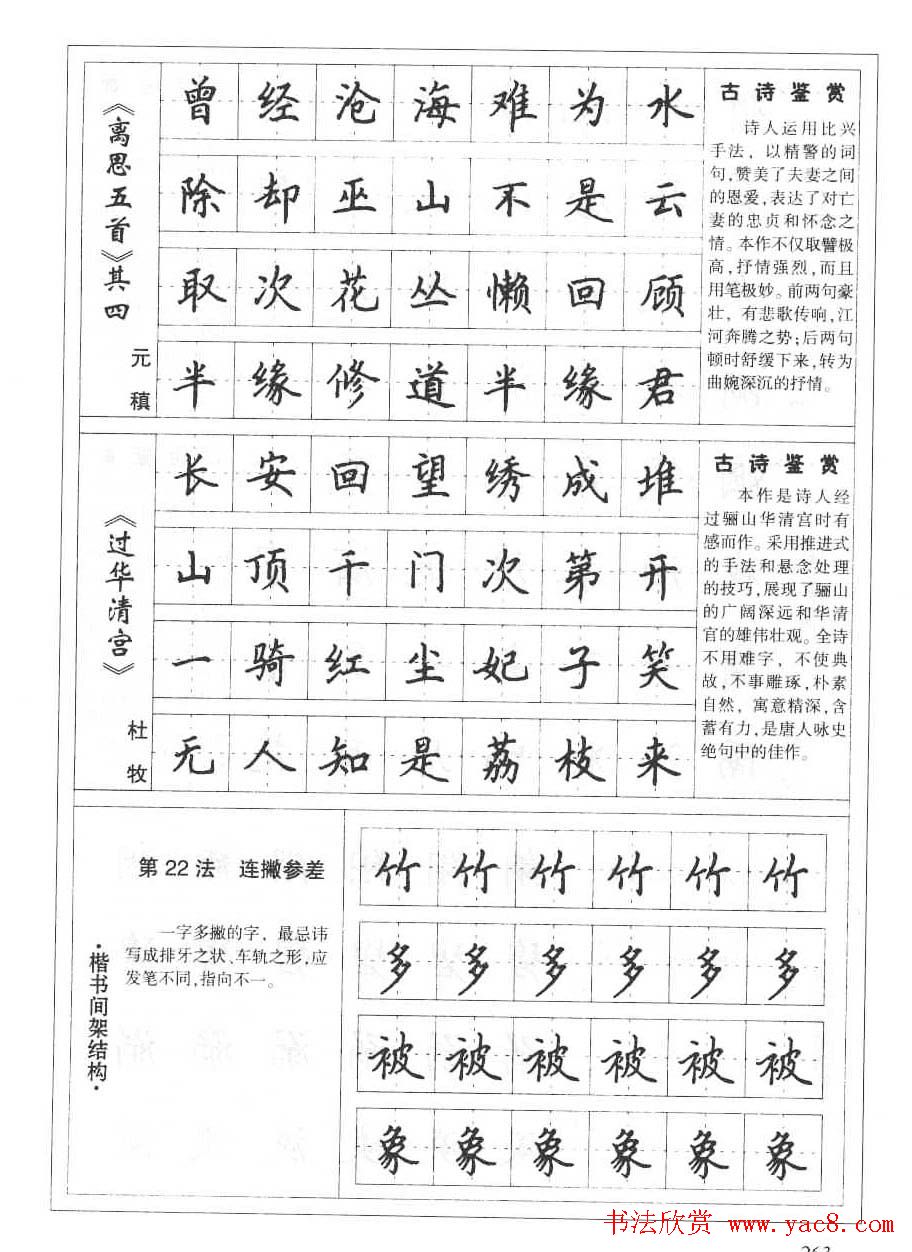 《离思五首》其四
元稹
曾经沧海难为水
除却巫山不是云
取次花丛懒回顾
半缘修道半缘君
古诗鉴赏
诗人运用比兴
手法，以精警的词
句，赞美了夫妻之间
的恩爱，表达了对亡
妻的忠贞和怀念之
情。本作不仅取譬极
高，抒情强烈，而且
用笔极妙。前两句豪
壮，有悲歌传响，江
河奔腾之势；后两句
顿时舒缓下来，转为
曲婉深沉的抒情。
《过华清宫》
杜牧
长安回望绣成堆
山顶千门次第开
一骑红尘妃子笑
无人知是荔枝来
古诗鉴赏
本作是诗人经
过骊山华清宫时有
感而作。采用推进式
的手法和悬念处理
的技巧，展现了骊山
的广阔深远和华清
官的雄伟壮观。全诗
不用难字，不使典
故，不事雕琢，朴素
自然，寓意精深，含
蓄有力，是唐人咏史
绝句中的佳作。
·楷书间架结构·
第22法 连撇参差
一字多撇的字，最忌讳
写成排牙之状、车轨之形，应
发笔不同，指向不一。
竹竹竹竹竹竹
多多多多多多
被被被被被被
象象象象象象
书法欣赏 www.yac8.com
263